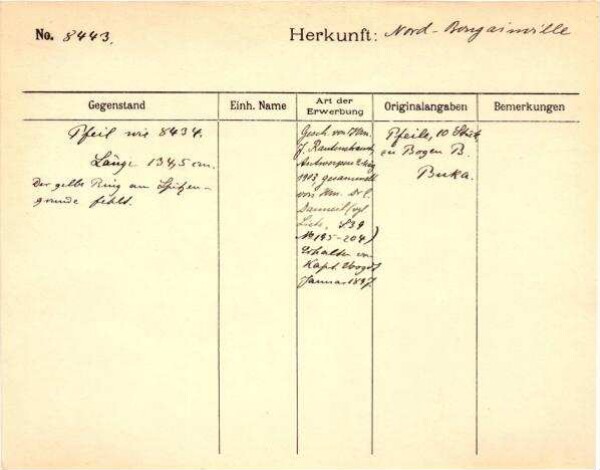 No. 8443.
Herkunft: Nord-Bougainville
Gegenstand
Einh. Name
Art der Erwerbung
Originalangaben
Bemerkungen
Pfeil wie 8434.
Länge 134,5 cm.
Der gelbe Ring am Spitzen-
grunde fehlt.
Gesch. von Hrn.
J. Rautenstrauch,
Antwerpen
1913, gesammelt
von Hrn. Dr. C.
Danneil (vgl.
Liste, S 39
No 195-204)
Erhalten von
Kapt. Voogdt
Januar 1897
Pfeile, 10 Stück
zu Bogen B.
Buka.